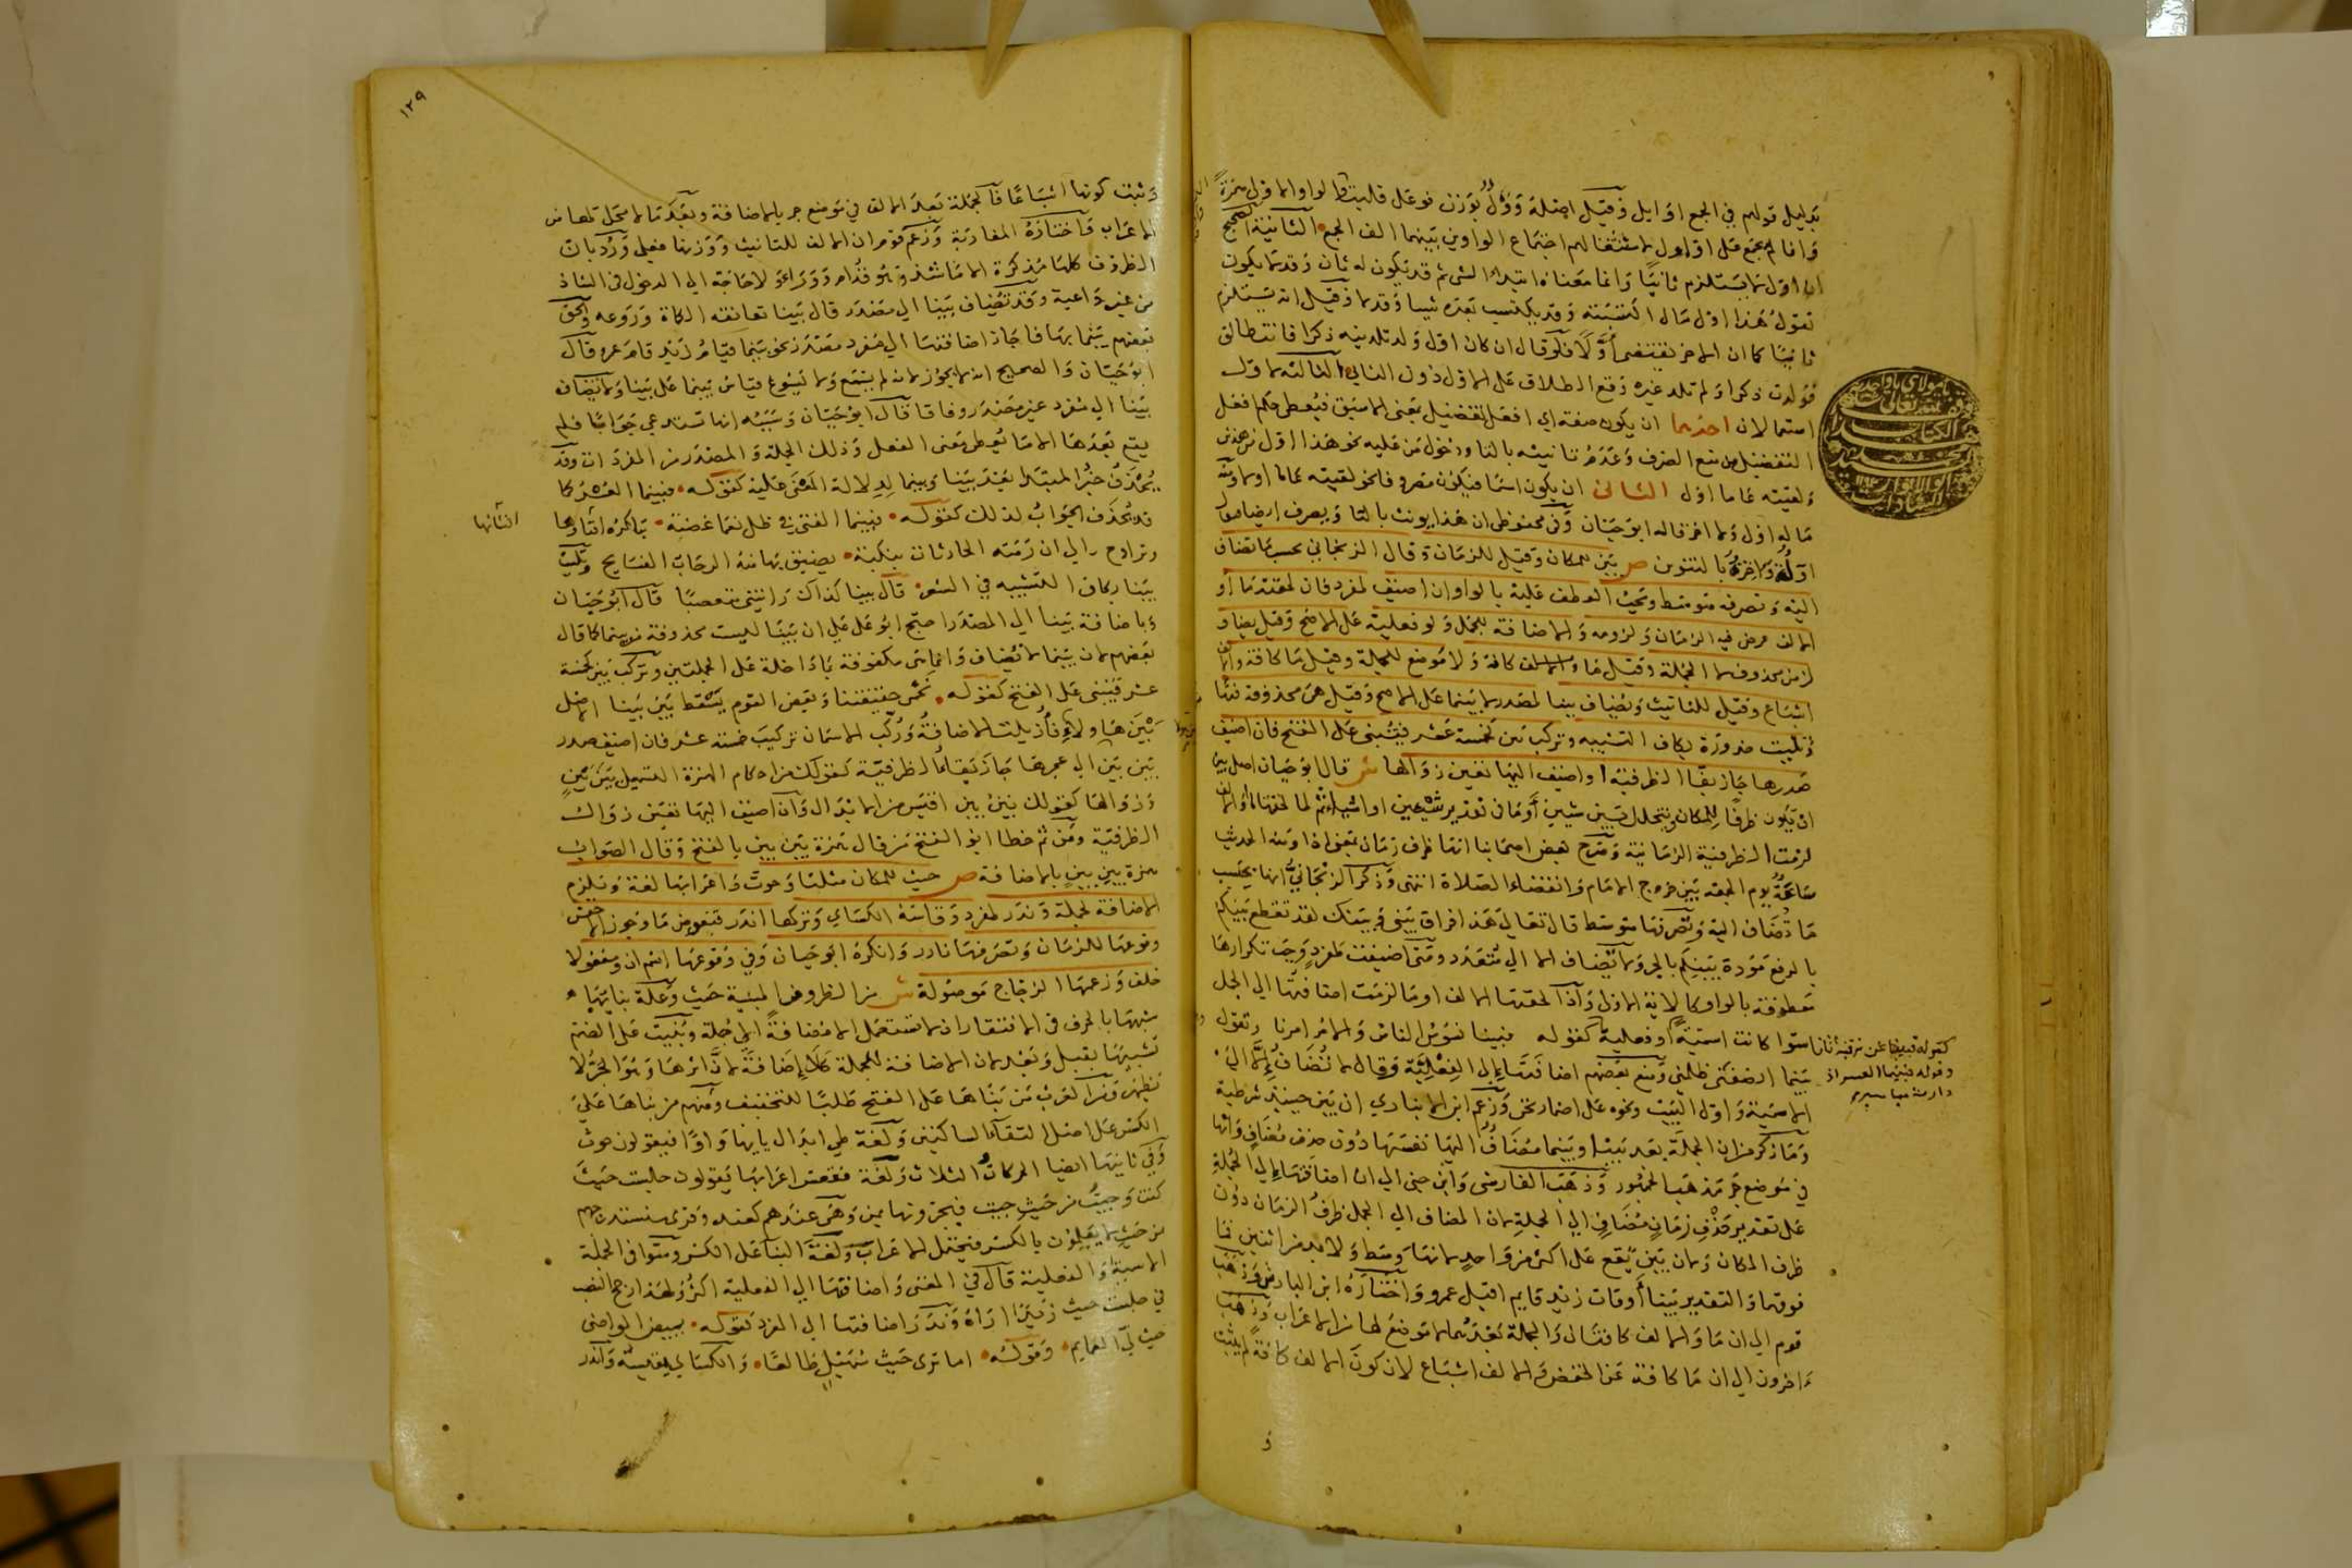 بدليل قولهم في الجمع اوايل وقيل اصله وؤل بوزن فوعل قلبت الواو الاولى همزة
وانما لم يجمع على اواول لاستثقالهم اجتماع الواوين بينهما الف الجمع الثانية الصحيح
ان اول لا يستلزم ثانيا وانما معناه ابتداء الشى ثم قد يكون له ثان وقد لا يكون
تقول هذا اول مال اكتسبته وقد يكتسب بعده شيا وقد لا وقيل انه يستلزم
ثانيا كما ان الاخر يقتضي أولا فلو قال ان كان اول ولد تلدينه ذكرا فانت طالق
فولدت ذكرا ولم تلد غيره وقع الطلاق على الاول دون الثاني الثالثة لاول
استعمالان احدهما ان يكون صفة اي افعل تفضيل بمعنى الاسبق فيعطى حكم افعل
التفضيل من منع الصرف وعدم تانيثه بالتا ودخول من عليه نحو هذا اول من هذين
ولقيته عاما اول الثاني ان يكون اسما فيكون مصروفا نحو لقيته عاما اولا ومنه
ما له اول ولا اخر قال ابو حيان وفي محفوظي ان هذا يونث بالتا ويصرف ايضا فيقول
اولة واخرة بالتنوين ص بين للمكان وقيل للزمان وقال الزنجاني بحسب ما تضاف
اليه وتصرفه متوسط ويجب العطف عليه بالواو ان اضيف لمفرد فان لحقته ما او
الالف عرض فيه الزمان ولزومه والاضافة لجمل ولو فعلية على الاصح وقيل يضاف
لزمن محذوف لا الجملة وقيل ما والالف كافة ولا موضع للجملة وقيل ما كافة والالف
اشباع وقيل للتانيث وتضاف بينا لمصدر لا بينما على الاصح وقيل هى محذوفة نمتا
وتليت ضرورة بكاف التشبيه وتركب بين كخمسة عشر فيبنى على الفتح فان اضيف
صدرها جاز بقا الظرفية او اضيف اليها تعين زوالها ش قال ابو حيان اصل بين
ان يكون ظرفا للمكان ويتخلل بين شيين أو ما في تقدير شيين او اشياء ثم لما لحقتها ما او الالف
لزمت الظرفية الزمانية وصرح بعض اصحابنا انها ظرف زمان بمعنى اذ اومنه الحديث
ساعة يوم الجمعه بين خروج الامام وانقضاء الصلاة انتهى وذكر الزنجاني انها بحسب
ما تضاف اليه وتصرفها متوسط قال تعالى هذا فراق بيني وبينك لقد تقطع بينكم
بالرفع مودة بينكم بالجر ولا تضاف الا الي متعدد ومتى اضيفت لمفرد وجب تكرارها
معطوفة بالواو كالاية الاولى واذا لحقتها الالف او ما لزمت اضافتها الي الجمل
سوا كانت اسمية أو فعلية كقوله فبينا نسوس الناس والامر امرنا وتقول
بينما انصفتنى ظلمتنى ومنع بعضهم اضافتها إلى الفعلية وقال لا تضاف إلا الي
الاسمية واول البيت ونحوه على اضمار نحن وزعم ابن الانباري ان بين حينيذ شرطية
وما ذكر من ان الجملة بعد بينا وبينما مضاف اليها نفسها دون حذف مضاف وانها
في موضع جر مذهب الجمهور وذهب الفارسى وابن جنى الي ان اضافتها إلى الجملة
على تقدير حذف زمان مضاف الي الجملة لان المضاف الي الجمل ظرف الزمان دون
ظرف المكان ولان بين يقع على اكثر من واحد لانها وسط ولا بد من اثنين فما
فوقها والتقدير بينا أوقات زيد قايم اقبل عمرو واختاره ابن الباذش وذهب
قوم الي ان ما والالف كافتان والجملة بعدهما لا موضع لها من الاعراب وذهب
ءاخرون الي ان ما كافة عن الخفض والالف اشباع لان كون الالف كافة لم يثبت
و
كقوله فبينا نحن نرقبه اتانا
وقوله فبينما العسر اذ
دارت مياسير
١٢٩
وثبت كونها اشباعا فالجملة بعد الالف في موضع جر بالاضافة وبعد ما لا محل لها من
الاعراب واختاره المغاربة وزعم قوم ان الالف للتانيث ووزنها فعلى ورد بان
الظروف كلها مذكرة الا ما شذ وهو قدام ووراء ولا حاجة الي الدخول في الشاذ
من غير داعية وقد تضاف بينا الي مصدر قال بينا تعانقه الكماة وروغه والحق
بعضهم بينما بها فاجاز اضافتها الي مفرد مصدر نحو بينما قيام زيد قام عمرو قال
ابو حيان والصحيح انه لا يجوز لانه لم يسمع ولا يسوغ قياس بينما على بينا ولا تضاف
بينا الي مفرد غير مصدر وفاقا قال ابو حيان وسببه انها تستدعي جوابا فلم
يقع بعدها الا ما يعطى معنى الفعل وذلك الجملة والمصدر من المفردات وقد
يحذف خبر المبتدا بعد بينا وبينما لدلالة المعنى عليه كقوله فبينما العسر كما
قد يحذف الجواب لذلك كقوله فبينما الفتى في ظل نعما غضة تباكره افياوها
وتراوح الي ان رمته الحادثات بنكبة يضيق بها منه الرحاب الفسايح وتليت
بينا بكاف التشبيه في الشعر قال بينا كذاك رايتنى متعصبا قال ابو حيان
وباضافة بينا الي المصدر احتج ابو على علي ان بينا ليست محذوفة من بينما كما قال
بعضهم لان بينما لا تضاف وانما هى مكفوفة بما داخلة على الجملتين وتركب بين كخمسة
عشر فتبنى على الفتح كقوله نحمى حقيقتنا وبعض القوم يسقط بين بينا الاصل
بين هاولاء فازيلت الاضافة وركب الاسمان تركيب خمسة عشر فان اضيف صدر
بين بين الي عجزها جاز بقاء الظرفية كقولك من احكام الهمزة التسهيل بين بين
وزوالها كقولك بين بين اقيس من الابدال وان اضيف اليها تعين زوال
الظرفية ومن ثم خطا ابو الفتح من قال همزة بين بين بالفتح وقال الصواب
همزة بين بين بالاضافة ص حيث للمكان مثلثا وحوث واعرابها لغة ويلزم
الاضافة لجملة وندر لمفرد وقاسه الكساي وتركها اندر فتعوض ما وجوز الاخفش
وقوعها للزمان وتصرفها نادر وانكره ابو حيان وفي وقوعها اسم ان ومفعولا
خلف وزعمها الزجاج موصولة ش من الظروف المبنية حيث وعلة بنايها
شبهها بالحرف في الافتقار اذ لا تستعمل الا مضافة الي جملة وبنيت على الضم
تشبيها بقبل وبعد لان الاضافة للجملة كلا إضافة لان اثرها وهو الجر لا
يظهر ومن العرب من بناها على الفتح طلبا للتخفيف ومنهم من بناها علي
الكسر على اصل التقاء الساكنين ولغة طي ابدال يايها واوا فيقولون حوث
وفي ثايها ايضا الحركات الثلاث ولغة فقعس اعرابها يقولون جلست حيث
كنت وجيت من حيث جيت فيجرونها بمن وهى عندهم كعند وقرى سنستدرجهم
من حيث لا يعلمون بالكسر فيحتمل الاعراب ولغة البنا على الكسر وسوا في الجملة
الاسمية والفعلية قال في المغنى واضافتها الي الفعلية اكثر ولهذا رجح النصب
في جلست حيث زيدا اراه وندر اضافتها الي المفرد كقوله ببيض المواضى
حيث لي العمايم وقوله اما ترى حيث سهيل طالعا والكساي يقيسه واندر